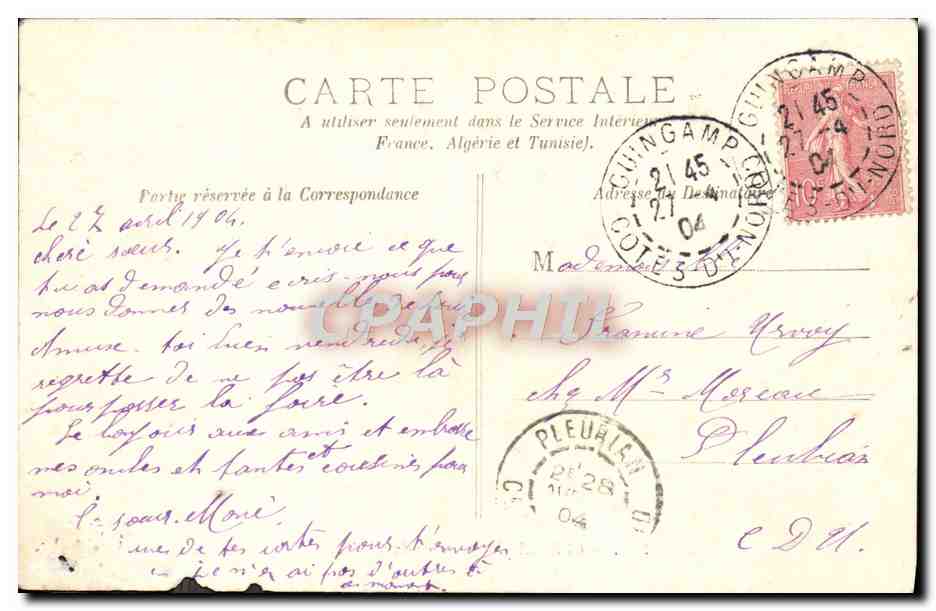 CARTE POSTALE
A utiliser seulement dans le Service Intérieur
France, Algérie et Tunisie).
Partie réservée à la Correspondance
Adresse du Destinataire
GUINGAMP
21 45
27 -4
04
COTES-DU-NORD
GUINGAMP
21 45
27 -4
04
COTES-DU-NORD
10
Le 27 avril 1904.
chère sœur. Je t'envoie ce que
tu as demandé ecris-nous pour
nous donner des nouvelles
Amuse-toi bien vendredi je
regrette de ne pas être là
pour passer la foire.
Le bonjour aux amis et embrasse
mes oncles et tantes et cousines pour
moi.
ta sœur Marie
de tes cartes pour t'envoyer
Je n'en ai pas d'autres
CPAPHIL
Mademoiselle
Urvoy
chez Mr Moreau
Pleubian
C D N.
PLEUBIAN
28
04